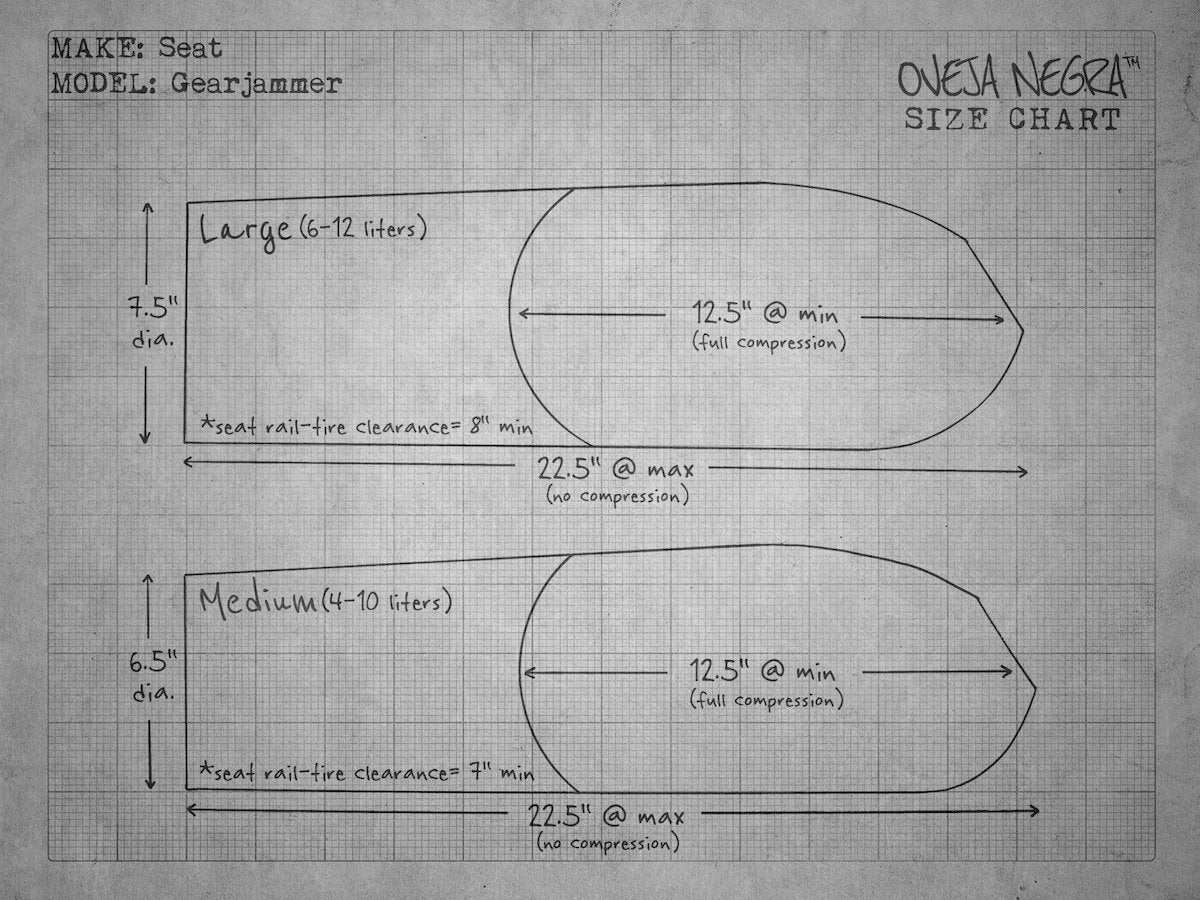 MAKE: Seat
MODEL: Gearjammer
OVEJA NEGRA™
SIZE CHART
Large (6-12 liters)
7.5"
dia.
12.5" @ min
(full compression)
*seat rail-tire clearance= 8" min
22.5" @ max
(no compression)
Medium (4-10 liters)
6.5"
dia.
12.5" @ min
(full compression)
*seat rail-tire clearance= 7" min
22.5" @ max
(no compression)